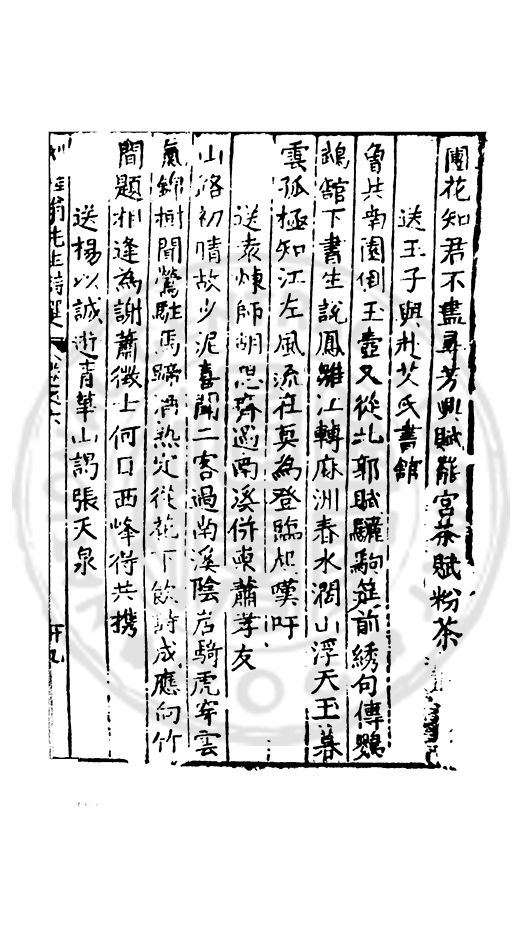 園花知君不盡尋芳興賦罷宮茶賦粉茶
送王子與赴艾氏書館
魯共南園個玉壺又從北郭賦驪駒筵前綉句傳鸚
鵡舘下書生說鳳雛江轉麻洲春水濶山浮天玉暮
雲孤極知江左風流在莫為登臨起嘆吁
送袁煉師胡思齊過南溪併柬蕭孝友
山路初晴故少泥喜聞二客過南溪陰店騎虎穿雲
氣錦樹聞鶯駐馬蹄酒熟定從花下飲詩成應向竹
間題相逢為謝蕭徵士何日西峰得共携
送楊以誠遊青華山謁張天泉
翁先生詩選 卷之六